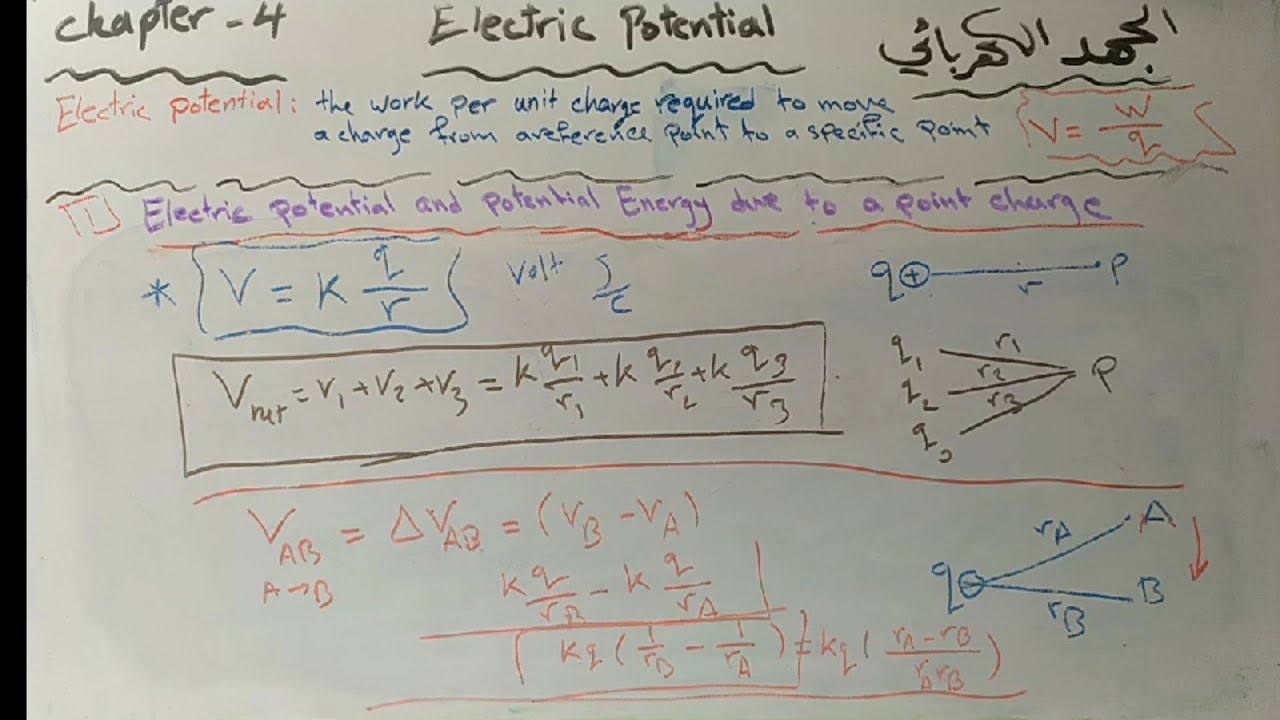 chapter - 4 Electric Potential الجهد الكهربائي
Electric potential: the work per unit charge required to move
a charge from a reference point to a specific point V = W/q
1 Electric potential and potential Energy due to a point charge
* V = k q/r Volt J/C q + r P
V net = V1 + V2 + V3 = k q1/r1 + k q2/r2 + k q3/r3
q1 r1
q2 r2 P
q3 r3
V AB = ΔV AB = (V B - V A)
A → B
k q/rB - k q/rA
kq (1/rB - 1/rA) = kq (rA - rB / rA rB)
q rA A
rB B